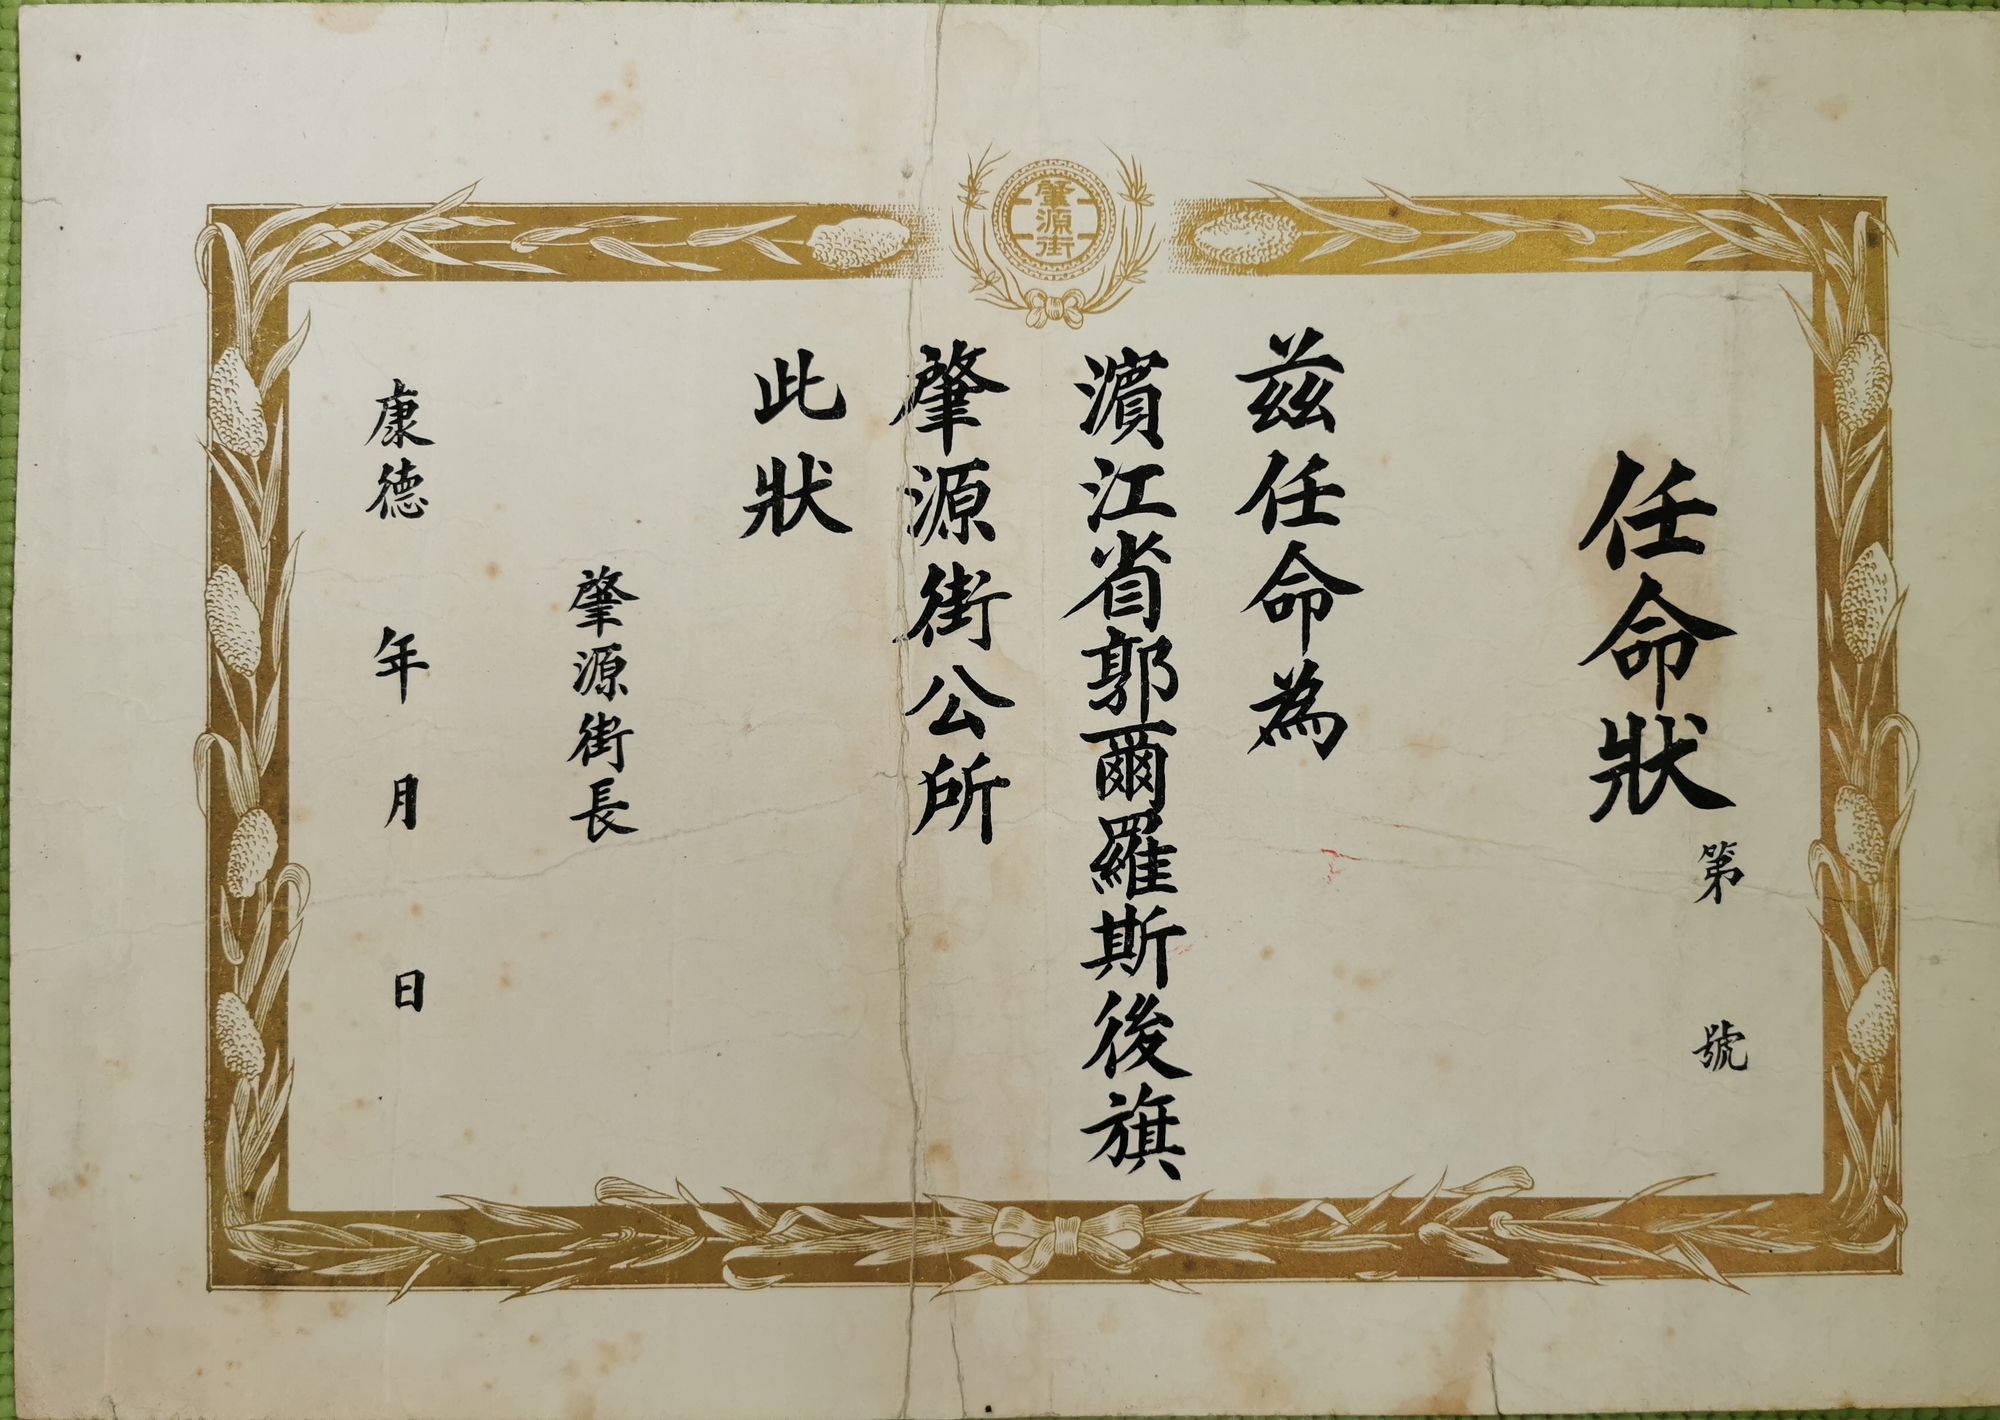 肇源街
任命狀
第 號
茲任命為
濱江省郭爾羅斯後旗
肇源街公所
此狀
肇源街長
康德 年 月 日